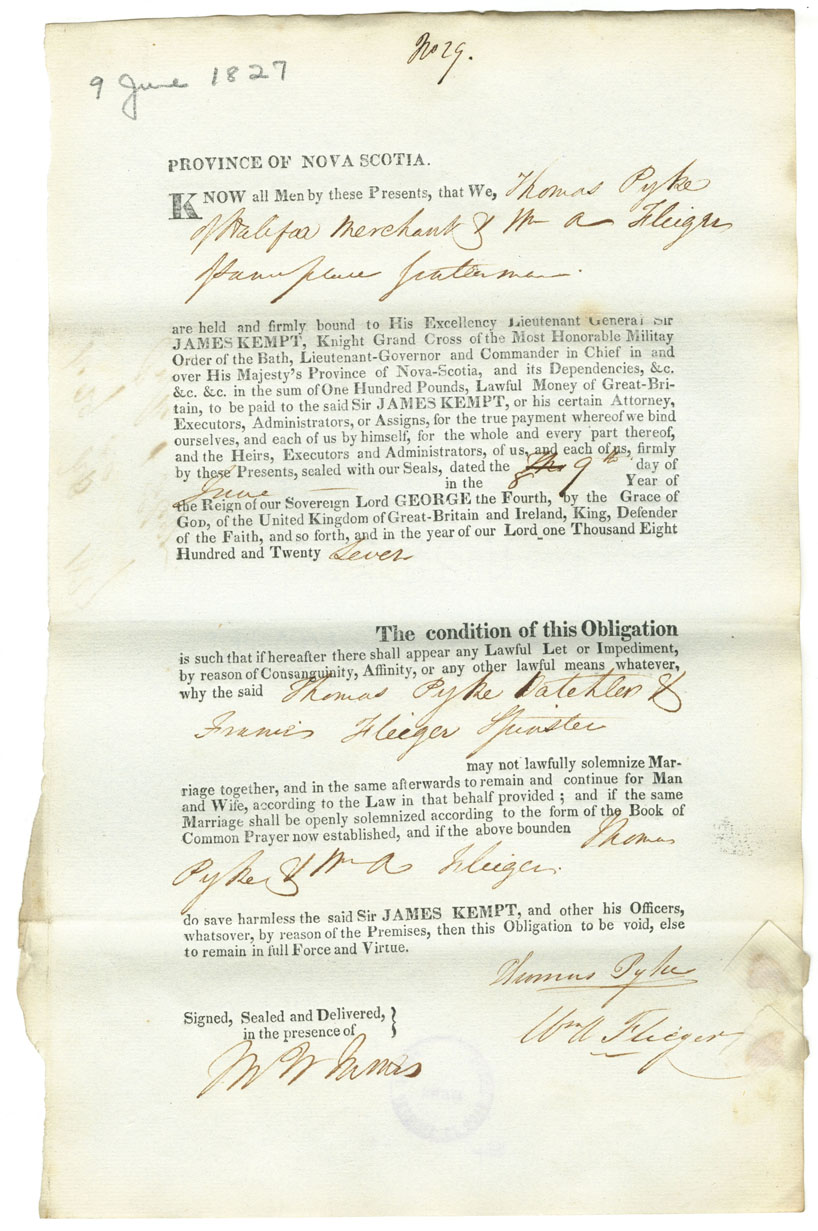 No 29.
9 June 1827
PROVINCE OF NOVA SCOTIA.
KNOW all Men by these Presents, that We, Thomas Pyke
of Halifax Merchant & Wm A Flieger
of same place Gentleman.
are held and firmly bound to His Excellency Lieutenant General Sir
JAMES KEMPT, Knight Grand Cross of the Most Honorable Militay
Order of the Bath, Lieutenant-Governor and Commander in Chief in and
over His Majesty's Province of Nova-Scotia, and its Dependencies, &c.
&c. &c. in the sum of One Hundred Pounds, Lawful Money of Great-Bri-
tain, to be paid to the said Sir JAMES KEMPT, or his certain Attorney,
Executors, Administrators, or Assigns, for the true payment whereof we bind
ourselves, and each of us by himself, for the whole and every part thereof,
and the Heirs, Executors and Administrators, of us, and each of us, firmly
by these Presents, sealed with our Seals, dated the 9th day of
June in the 8 Year of
the Reign of our Sovereign Lord GEORGE the Fourth, by the Grace of
GOD, of the United Kingdom of Great-Britain and Ireland, King, Defender
of the Faith, and so forth, and in the year of our Lord one Thousand Eight
Hundred and Twenty Seven
The condition of this Obligation
is such that if hereafter there shall appear any Lawful Let or Impediment,
by reason of Consanguinity, Affinity, or any other lawful means whatever,
why the said Thomas Pyke Batchler &
Francis Flieger Spinster
may not lawfully solemnize Mar-
riage together, and in the same afterwards to remain and continue for Man
and Wife, according to the Law in that behalf provided ; and if the same
Marriage shall be openly solemnized according to the form of the Book of
Common Prayer now established, and if the above bounden Thomas
Pyke & Wm A Flieger.
do save harmless the said Sir JAMES KEMPT, and other his Officers,
whatsover, by reason of the Premises, then this Obligation to be void, else
to remain in full Force and Virtue.
Thomas Pyke
Signed, Sealed and Delivered, }
in the presence of
Wm A Flieger